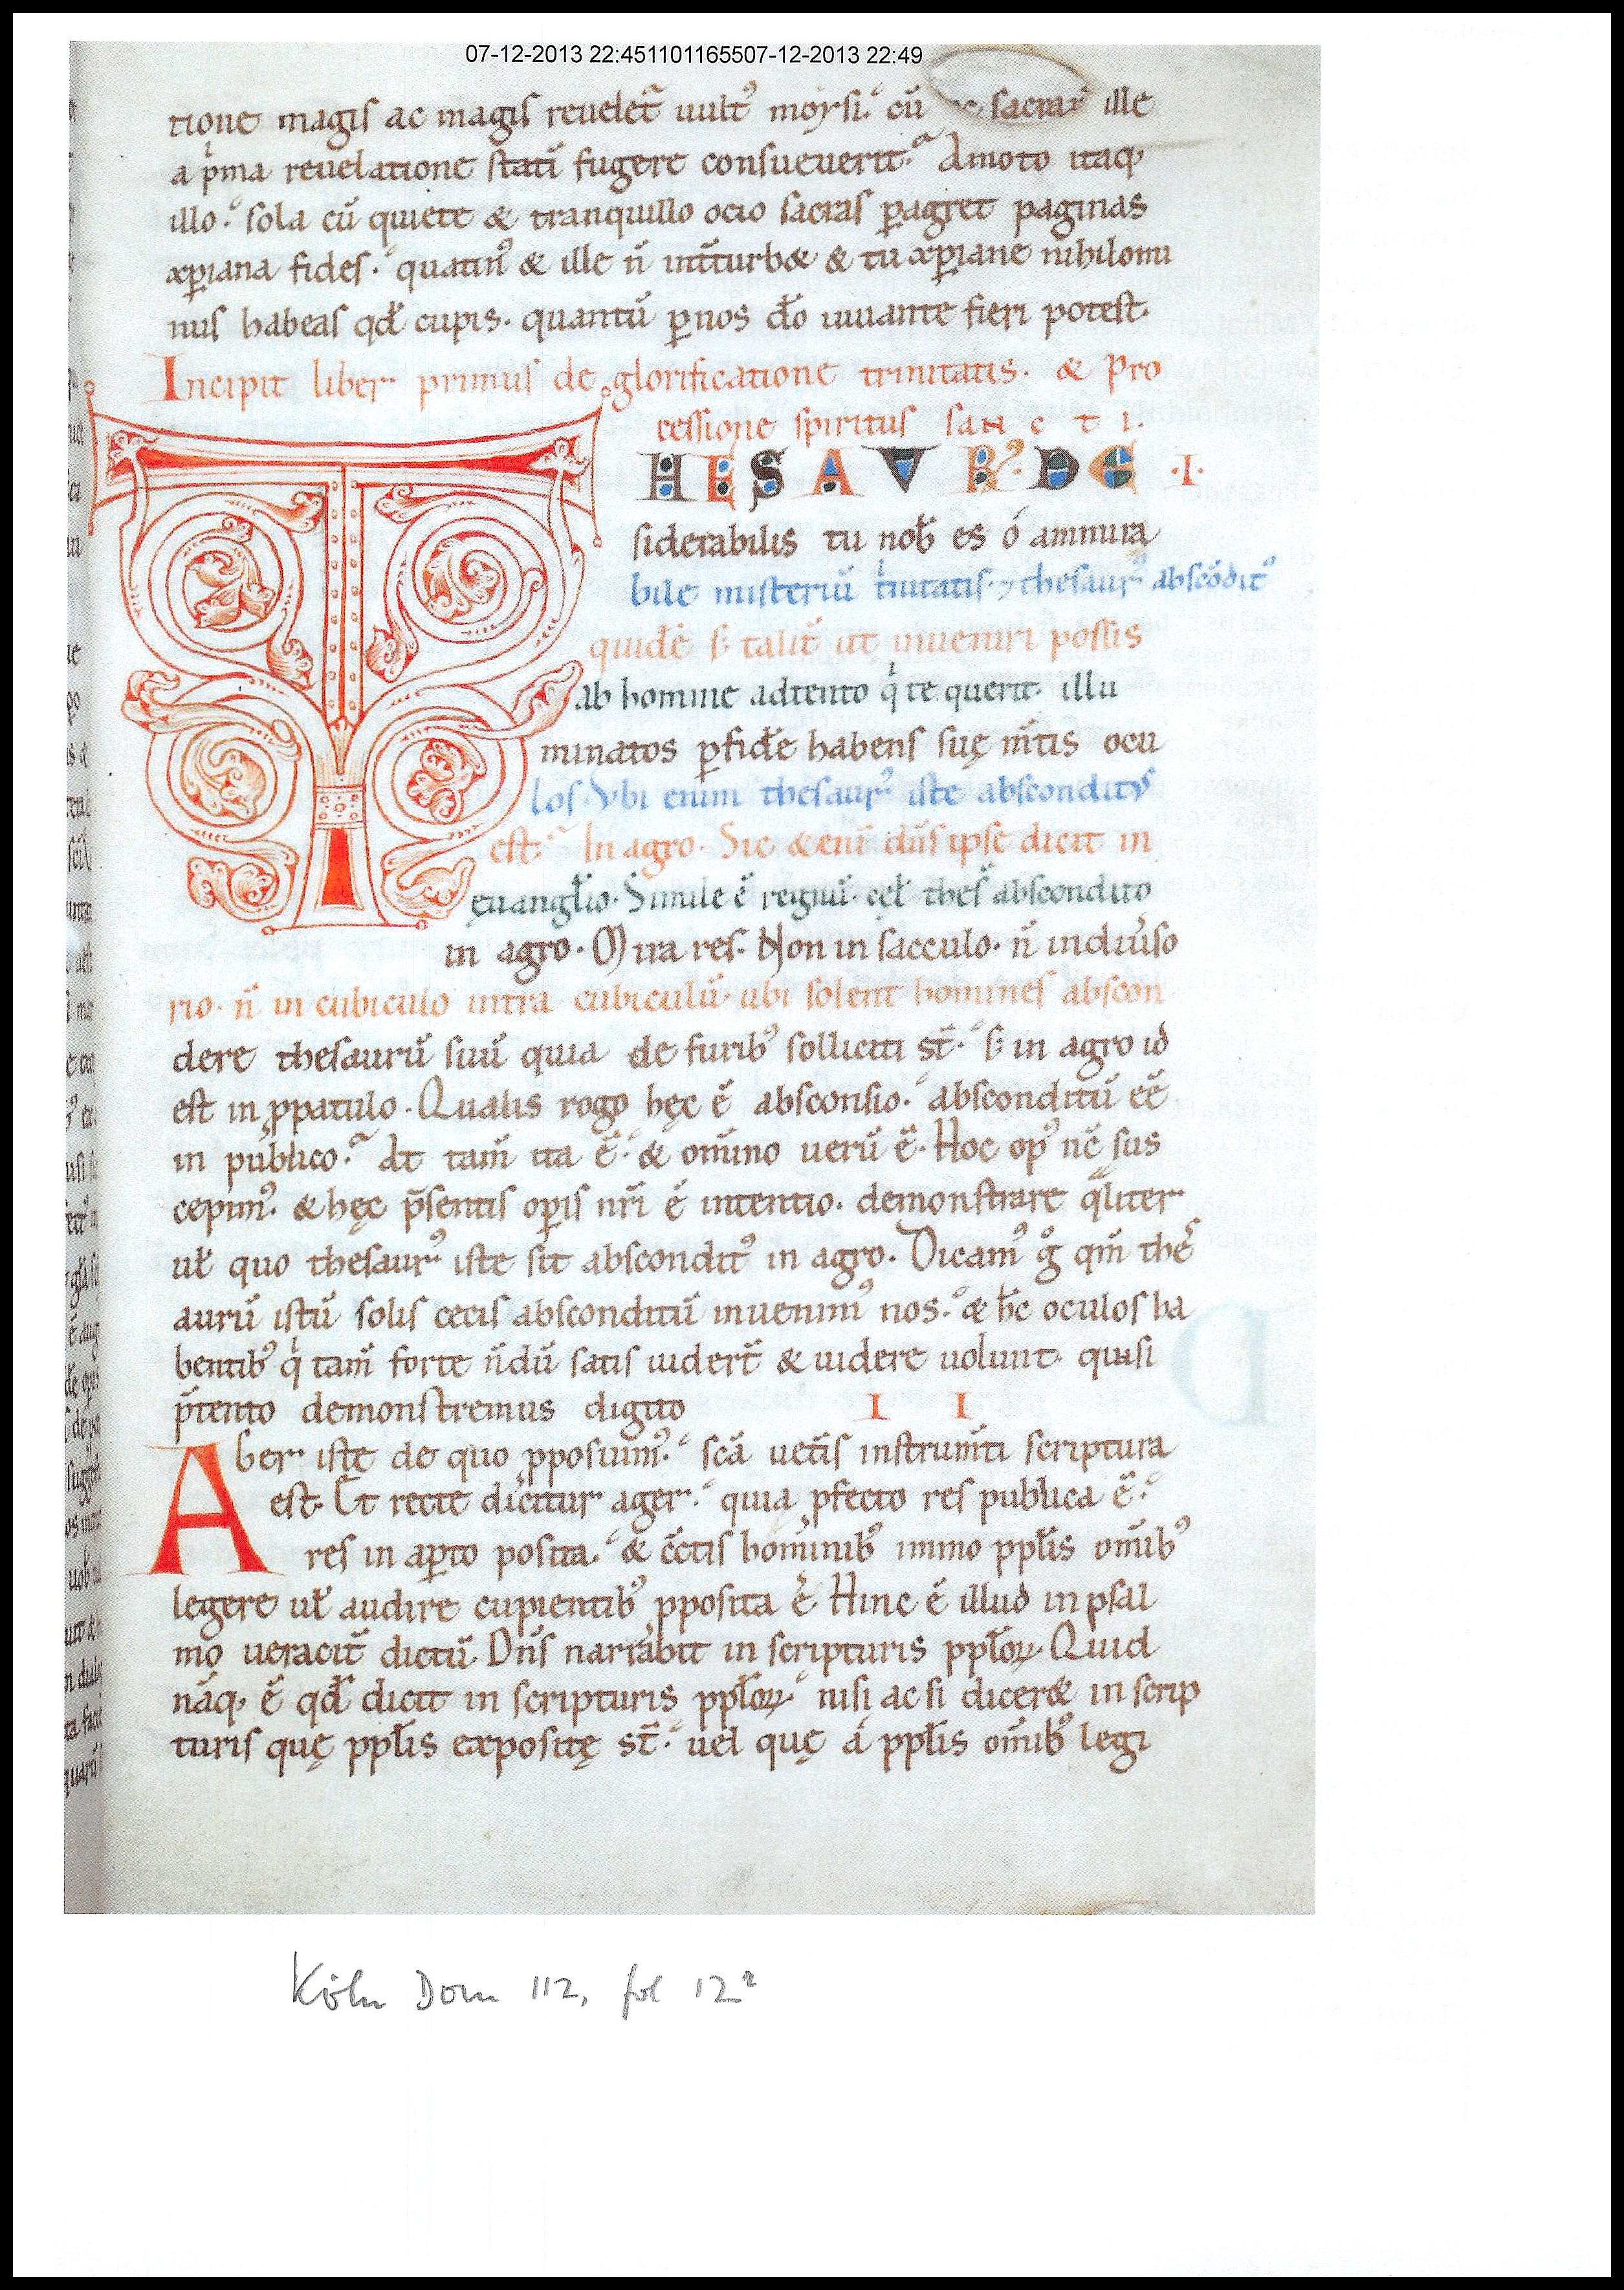 07-12-2013 22:451101165507-12-2013 22:49
tione magis ac magis reuelet̃ uult᾿ moysi. cũ sacrar̃ ille
a pͥma reuelatione statĩ fugere consueuerit. Amoto itaq;
illo. sola cũ quiete & tranquillo ocio sacras ꝑagret paginas
xp̃iana fides. quatin᾿ & ille ñ int̃turb& & tu xp̃iane nihilomi
nus habeas qđ cupis. quantũ ꝑ nos đo iuuante fieri potest.
Incipit liber primus de glorificatione trinitatis. & pro
cessione spiritus san c t i.
THESAUR᾿ DE .I.
siderabilis tu nob̃ es ó ammira
bile misteriũ tͥnitatis. ⁊ thesaur᾿ abscõdit᾿
quidẽ s; talit̃ ut inueniri possis
ab homine adtento qͥ te querit. illu
minatos ꝑ fidẽ habens suę m̃tis ocu
los. Vbi enim thesaur᾿ iste absconditus
est. In agro. Sic &enĩ dñs ipse dicit in
ęuangł̃io. Simile ẽ regnũ. cel̃ thes̃ abscondito
in agro. Mira res. Non in sacculo. ñ in diu̾so
rio. ñ in cubiculo intra cubiculũ. ubi solent homines abscon
dere thesaurũ suũ quia de furib᾿ solliciti st̃. s; in agro id
est in ꝓpatulo. Qualis rogo hęc ẽ absconsio. absconditũ eẽ
in publico. At tam̃ ita ẽ. & om̃ino uerũ ẽ. Hoc op᾿ nc̃ sus
cepim᾿. & hęc p̃sentis oꝑis nr̃i ẽ intentio. demonstrare qͣliter
uł quo thesaur᾿ iste sit abscondit᾿ in agro. Dicam᾿ gͦ qm̃ thes
aurũ istũ solis cecis absconditũ inuenim᾿ nos. & h̃c oculos ha
bentib᾿ qͥ tam̃ forte ñdũ satis uidert̃ & uidere uolunt. quasi
p̃tento demonstremus digito I I
Ager iste de quo ꝓposuim᾿. scã uet̃is instrum̃ti scriptura
est. Et recte dicitur ager. quia ꝓfecto res publica ẽ.
res in aꝑto posita. & c̃ctis hominib᾿ immo ppl̃is om̃ib᾿
legere uł audire cupientib᾿ ꝓposita ẽ Hinc ẽ illud in psal
mo ueracit̃ dictũ. Dñs narrabit in scripturis ppl̃oꝝ. Quid
nãq; ẽ qđ dicit in scripturis ppl̃oꝝ. nisi ac si dicer& in scrip
turis quę ppl̃is expositę st̃. uel quę á ppl̃is om̃ib᾿ legi
Köln Dom 112, fol 12ʳ